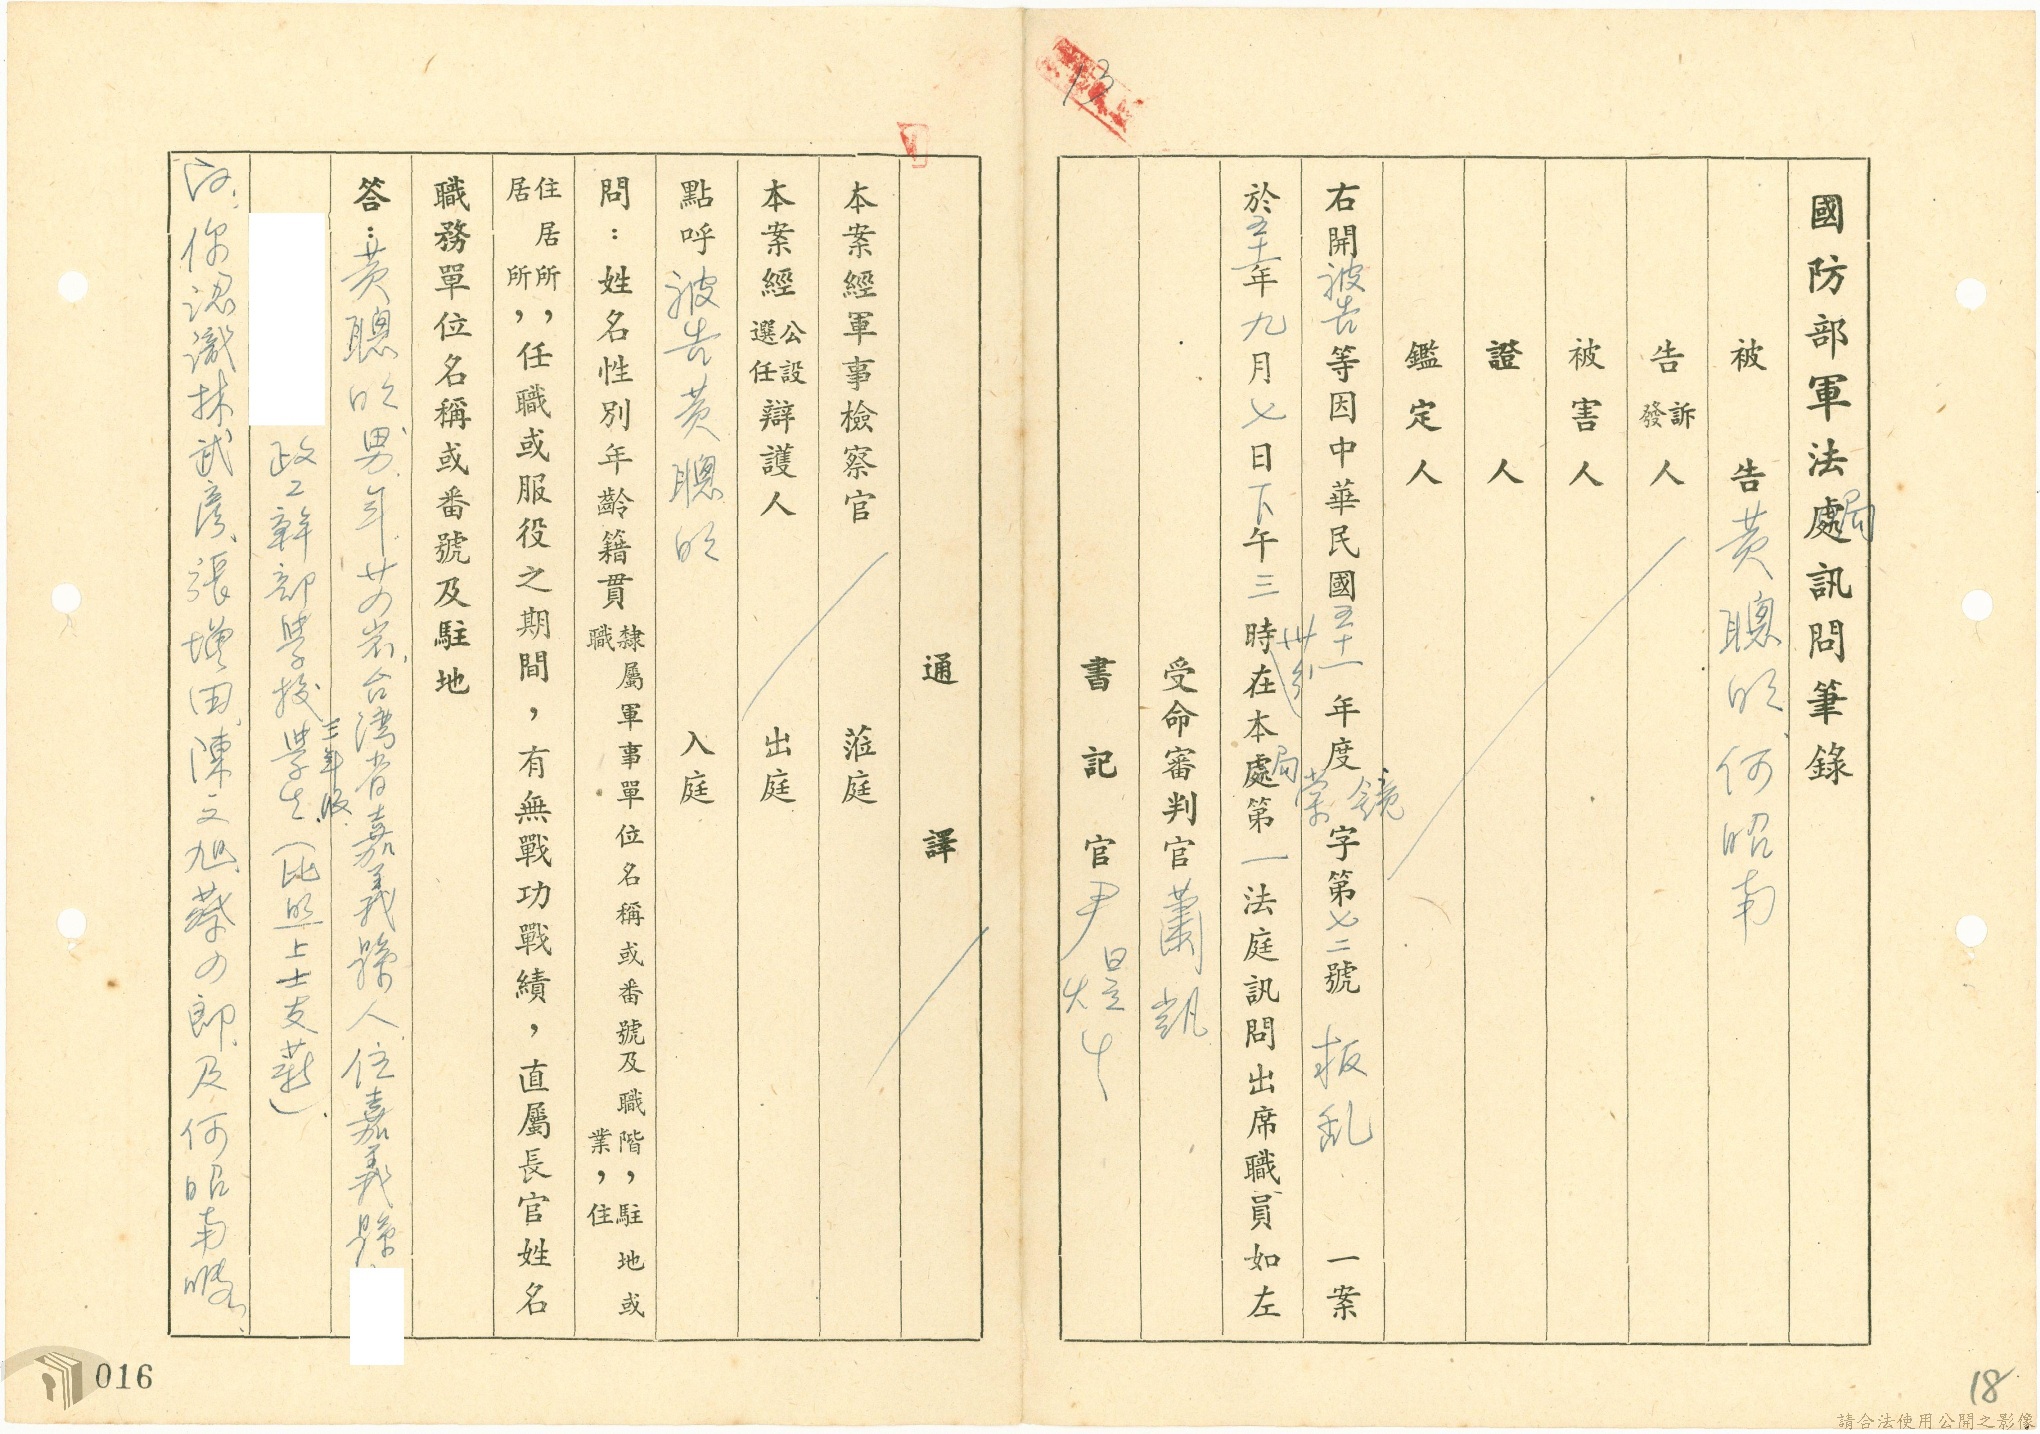 13
國防部軍法處訊問筆錄
局
被告黃聰明、何昭南
告訴發人
被害人
證人
鑑定人
右開被告等因中華民國五十一年度 字第七二號 叛乱 一案
鏡
於五十一年九月七日下午三時在本處第一法庭訊問出席職員如左
卅分
局
受命審判官蕭凱
書記官尹煜
通譯
本案經軍事檢察官 蒞庭
本案經公設選任辯護人 出庭
點呼被告黃聰明 入庭
問：姓名性別年齡籍貫隸屬軍事單位名稱或番號及職階，駐地或職業，住
住居所居所，任職或服役之期間，有無戰功戰績，直屬長官姓名
職務單位名稱或番號及駐地
答：黃聰明、男、年廿四歲、台湾省嘉義縣人住嘉義縣
政工幹部學校學生（比照上士支薪）
三年級
問、你認識林武彥、張增田、陳文旭、蔡四郎、及何昭南嗎、
016
18
請合法使用公開之影像